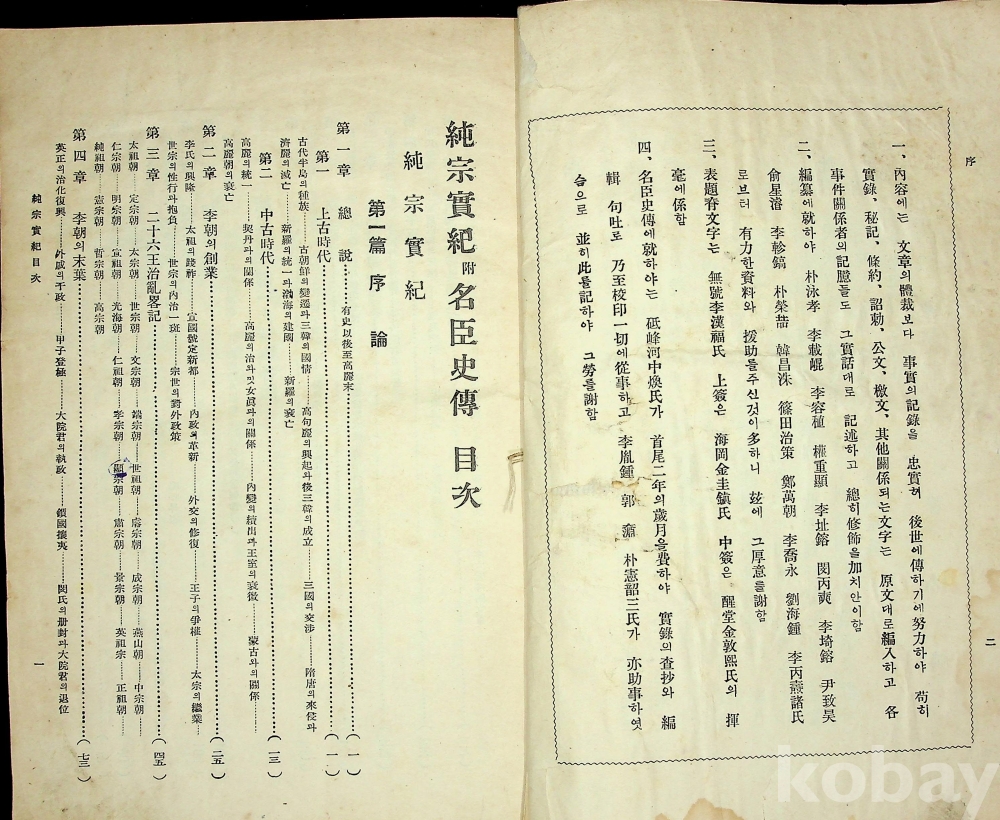 序
二
一、內容에는 文章의體裁보다 事實의記錄을 忠實히 後世에傳하기에努力하야 苟히
實錄、秘記、條約、詔勅、公文、檄文、其他關係되는文字는 原文대로編入하고 各
事件關係者의記臆들도 그實話대로 記述하고 總히修飾을加치안이함
二、編纂에就하야 朴泳孝 李載崐 李容稙 權重顯 李址鎔 閔丙奭 李埼鎔 尹致昊
兪星濬 李軫鎬 朴榮喆 韓昌洙 篠田治策 鄭萬朝 李喬永 劉海鍾 李丙燾諸氏
로브터 有力한資料와 援助를주신것이多하니 玆에 그厚意를謝함
三、表題脊文字는 無號李漢福氏 上簽은 海岡金圭鎭氏 中簽은 醒堂金敦熙氏의 揮
毫에係함
四、名臣史傳에就하야는 砥峰河中煥氏가 首尾二年의歲月을費하야 實錄의查抄와 編
輯 句吐로 乃至校印一切에從事하고 李胤鍾 郭 朴憲韶三氏가 亦助事하엿
슴으로 並히此를記하야 그勞를謝함
純宗實紀附名臣史傳 目次
純宗實紀
第一篇 序 論
第一章 總 說……有史以後至高麗末……(一)
第一 上古時代……(一一)
古代半島의種族……古朝鮮의變遷과三韓의國情……高句麗의興起와後三韓의成立……三國의交涉……隋唐의來侵과
濟麗의滅亡……新羅의統一과渤海의建國……新羅의衰亡
第二 中古時代……(一三)
高麗의統一……契丹과의關係……高麗의治와및女眞과의關係……內變의續出과王室의衰微……蒙古와의關係
高麗朝의衰亡
第二章 李朝의創業……(二五)
李氏의興隆……太祖의踐祚……宣國號定新都……內政의革新……外交의修復……王子의爭權……太宗의繼業
世宗의性行과抱負……世宗의內治一班……宗世의對外政策
第三章 二十六王治亂畧記……(四五)
太祖朝……定宗朝……太宗朝……世宗朝……文宗朝……端宗朝……世祖朝……睿宗朝……成宗朝……燕山朝……中宗朝
仁宗朝……明宗朝……宣祖朝……光海朝……仁祖朝……孝宗朝……顯宗朝……肅宗朝……景宗朝……英祖宗……正祖朝
純祖朝……憲宗朝……哲宗朝……高宗朝
第四章 李朝의末葉……(七三)
英正의治化復興……外戚의干政……甲子登極……大院君의執政……鎖國攘夷……閔氏의册封과大院君의退位
純宗實紀目次
一
kobay